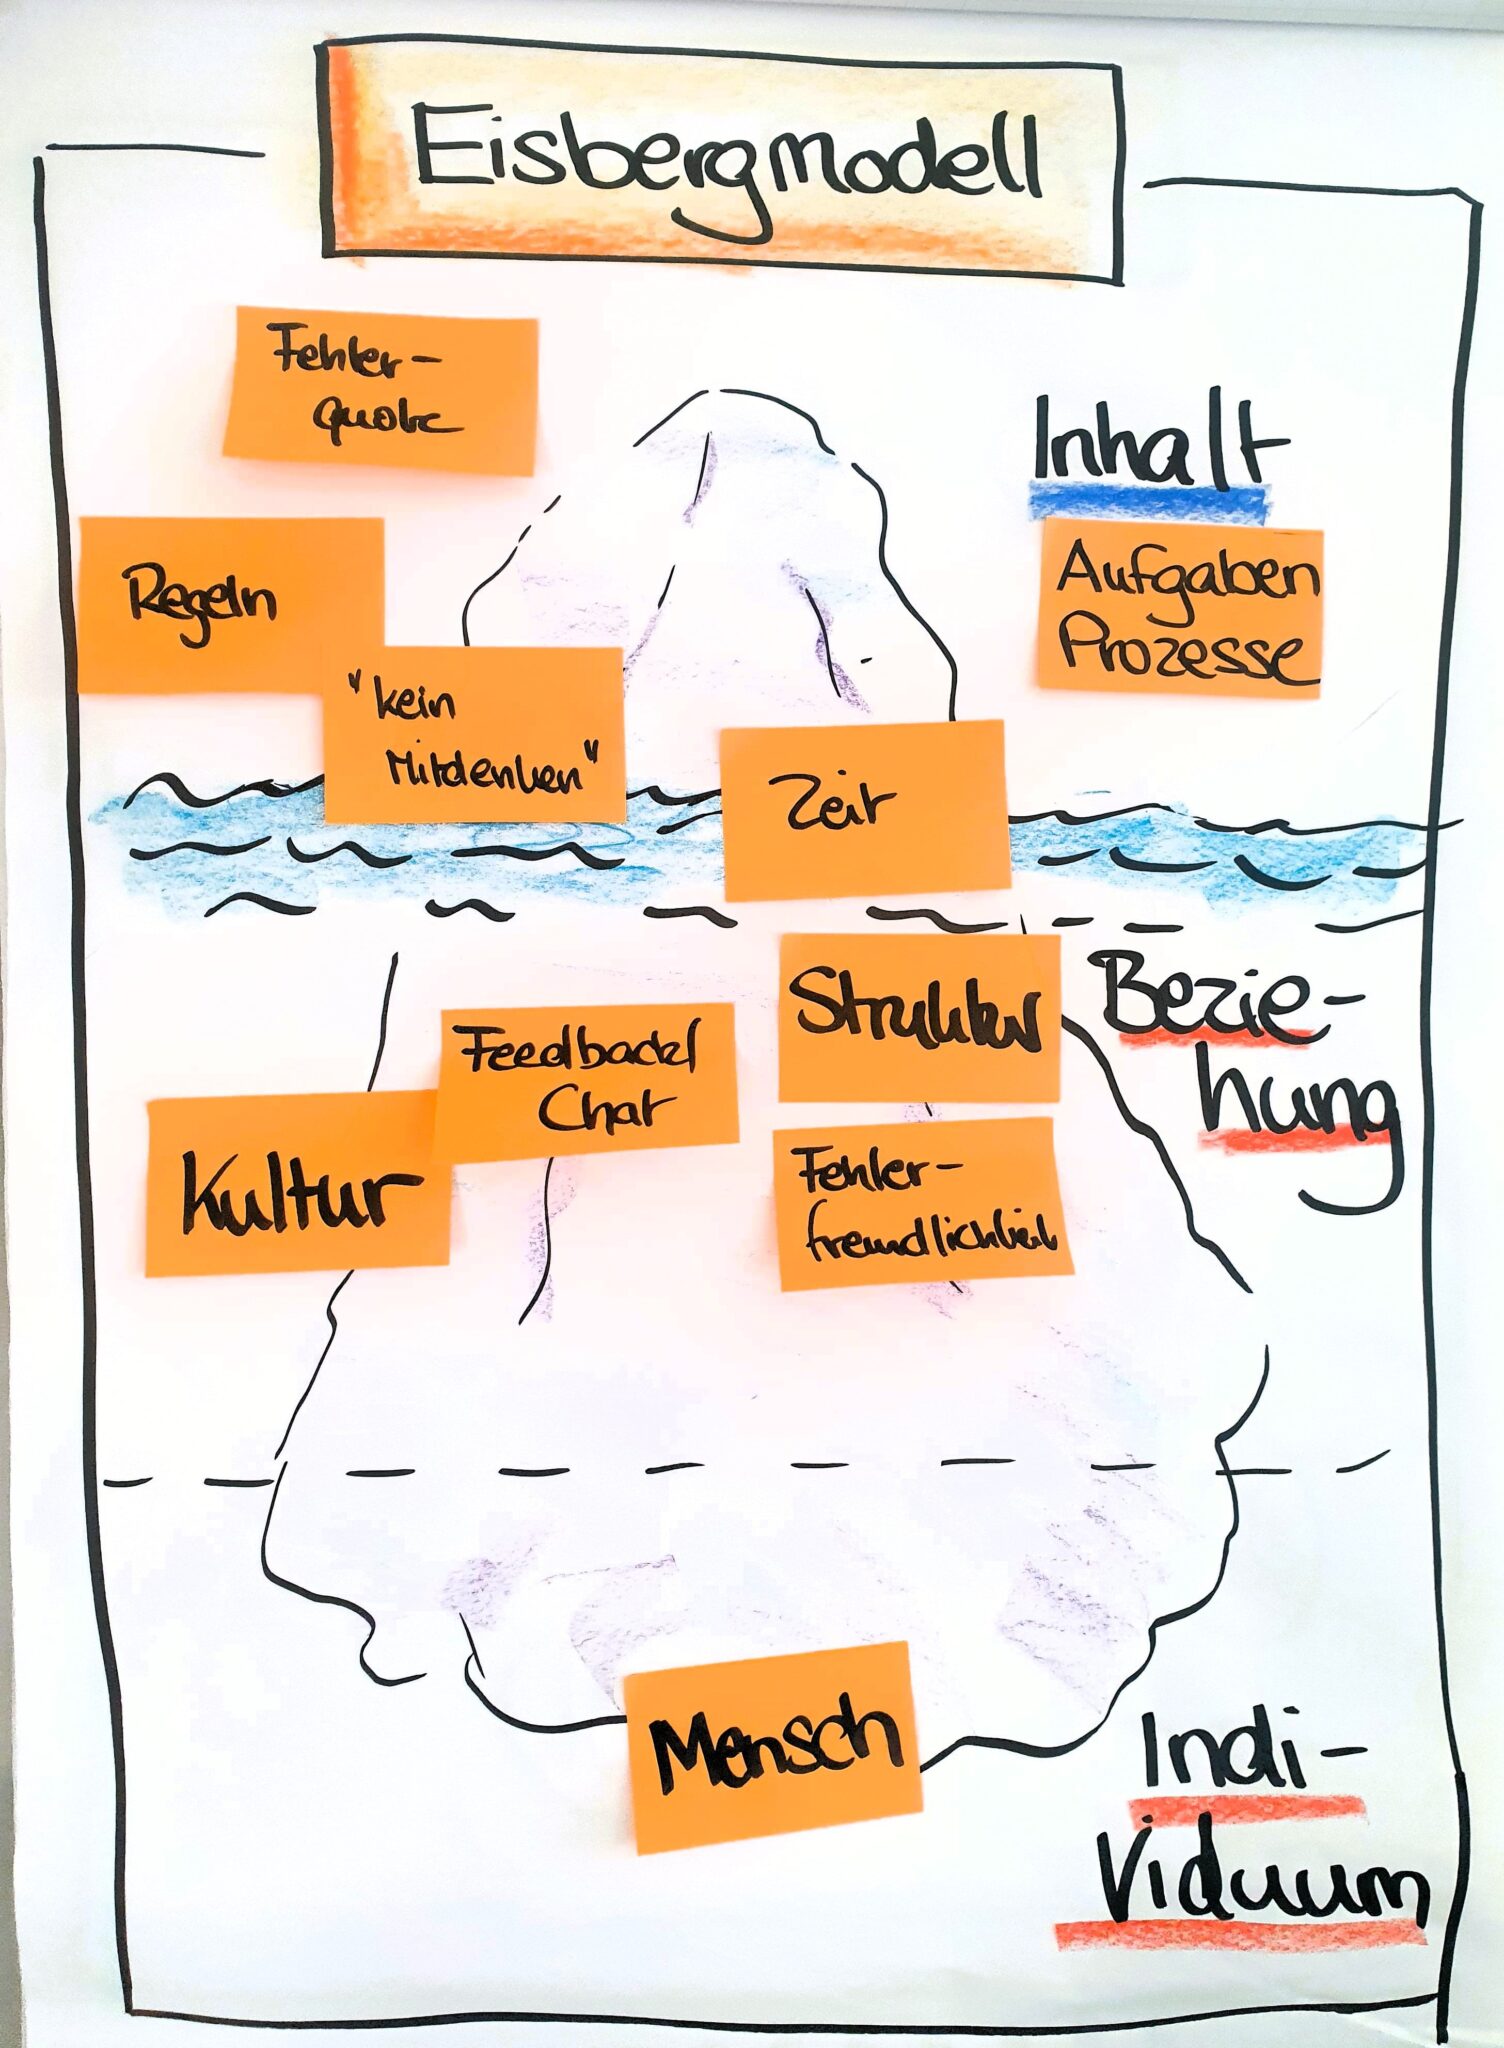 Eisbergmodell
Fehler-
quote
Inhalt
Aufgaben
Prozesse
Regeln
"kein
Mitdenken"
Zeit
Struktur
Bezie-
hung
Feedback/
Chat
Kultur
Fehler-
freundlichkeit
Mensch
Indi-
viduum